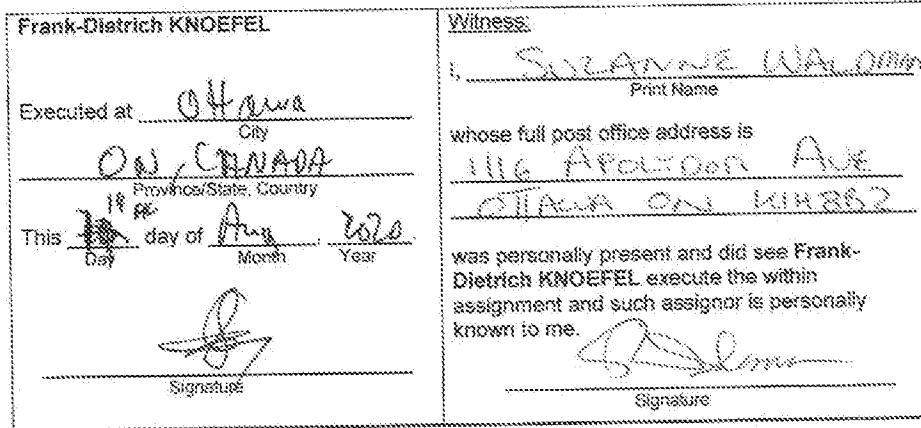 Frank-Dietrich KNOEFEL
Executed at Ottawa
City
ON, CANADA
Province/State, Country
This 18 day of Aug, 2020
Day Month Year
Signature
Witness:
I, SUZANNE
Print Name
whose full post office address is
1116 APOLYDOR AVE
OTTAWA ON K1H8B2
was personally present and did see Frank-
Dietrich KNOEFEL execute the within
assignment and such assignor is personally
known to me.
Signature